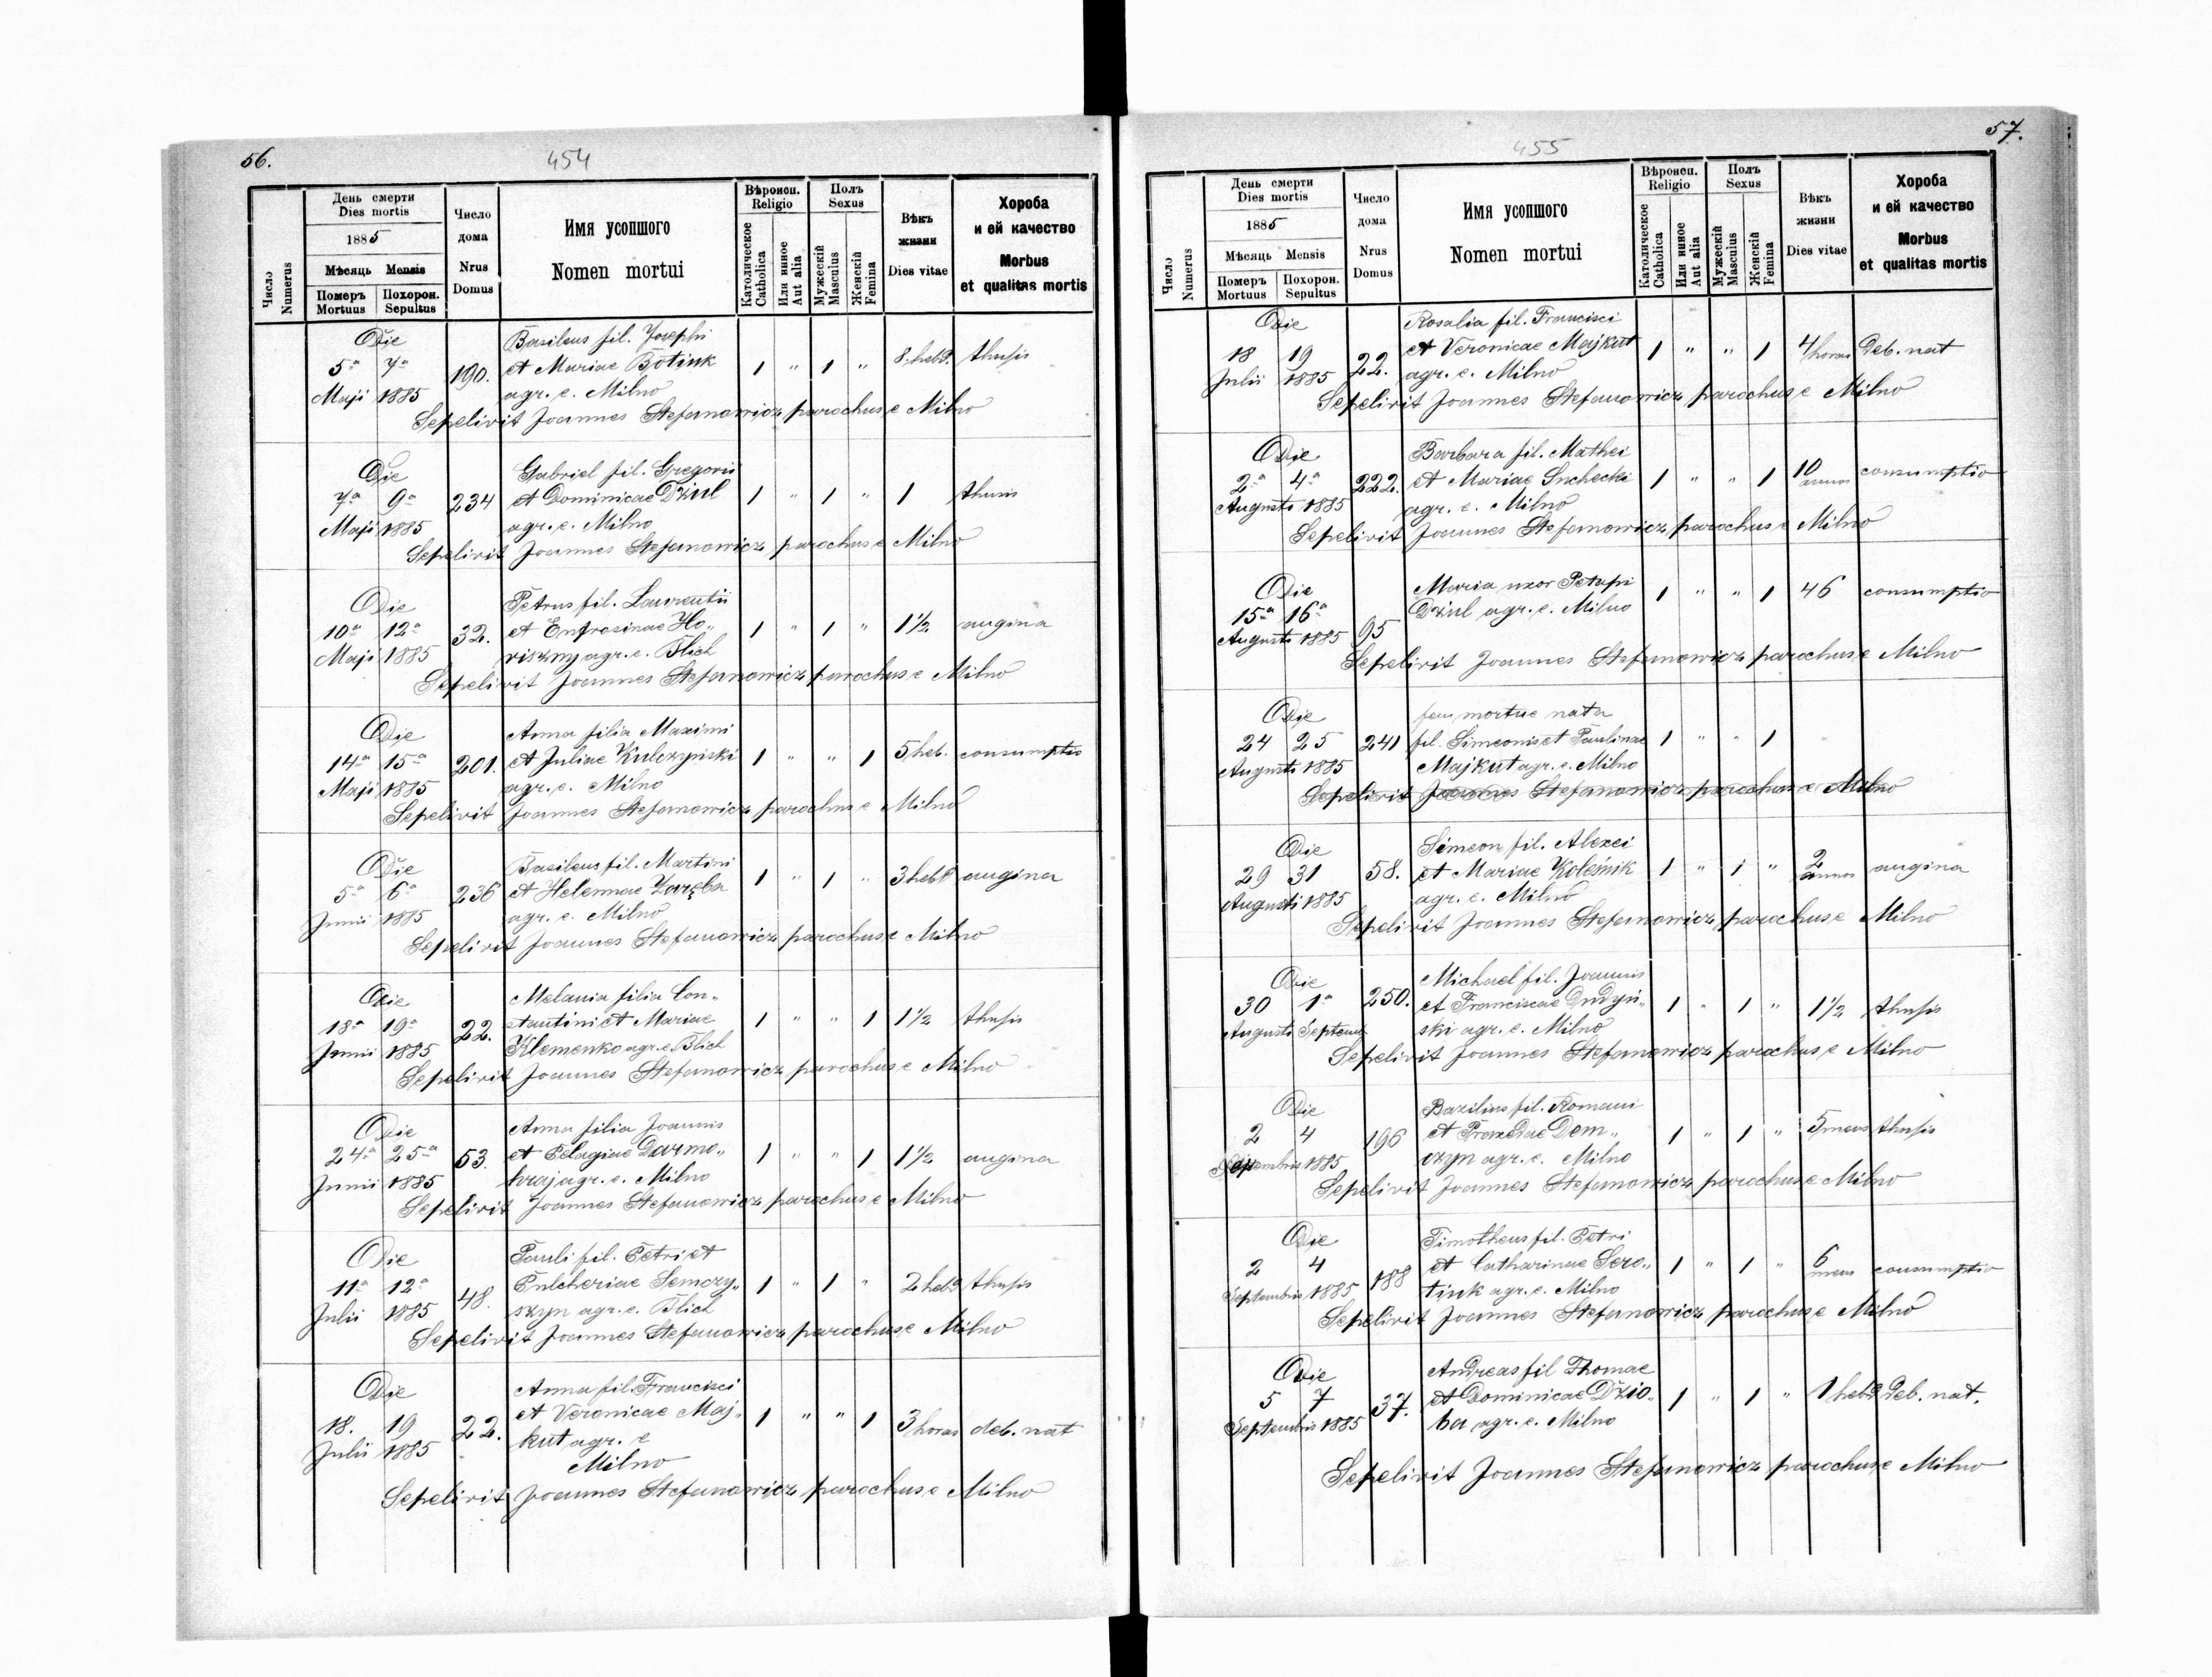 56.
454
Число
Numerus
День смерти
Dies mortis
1885
Мѣсяць Mensis
Померъ Похорон.
Mortuus Sepultus
Число
дома
Nrus
Domus
Имя усопшого
Nomen mortui
Вѣроисп.
Religio
Католическое
Catholica
Или инное
Aut alia
Полъ
Sexus
Мужескій
Masculus
Женскій
Femina
Вѣкъ
жизни
Dies vitae
Хороба
и ей качество
Morbus
et qualitas mortis
Die Basileus fil. Josephi
5a 7a 190. et Mariae Botiuk 1 " 1 " 8 hebd. thusis
Maji 1885 agr. e. Milno
Sepelivit Joannes Stefanowicz parochus e Milno
Die Gabriel fil. Gregorii
7a 9a 234 et Dominicae Dziul 1 " 1 " 1 thusis
Maji 1885 agr. e. Milno
Sepelivit Joannes Stefanowicz parochus e Milno
Die Petrus fil. Laurentii
10a 12a 32. et Eufrosinae Ho„ 1 " 1 " 1½ angina
Maji 1885 riszny agr. e. Blich
Sepelivit Joannes Stefanowicz parochus e Milno
Die Anna filia Maximi
14a 15a 201. et Juliae Kulczyński 1 " " 1 5 heb. consumptio
Maji 1885 agr. e. Milno
Sepelivit Joannes Stefanowicz parochus e Milno
Die Basileus fil. Martini
5a 6a 236 et Helennae Zaręba 1 " 1 " 3 hebd angina
Junii 1885 agr. e. Milno
Sepelivit Joannes Stefanowicz parochus e Milno
Die Melania filia Con„
18a 19a 22. stantini et Mariae 1 " " 1 1½ thusis
Junii 1885 Klemenko agr. e. Blich
Sepelivit Joannes Stefanowicz parochus e Milno
Die Anna filia Joannis
24a 25a 53. et Pelagiae Darmo„ 1 " " 1 1½ angina
Junii 1885 hraj agr. e. Milno
Sepelivit Joannes Stefanowicz parochus e Milno
Die Pauli fil. Petri et
11a 12a 48. Pulcheriae Semczy„ 1 " 1 " 2 hebd thusis
Julii 1885 szyn agr. e. Blich
Sepelivit Joannes Stefanowicz parochus e Milno
Die Anna fil. Francisci
18. 19 22. et Veronicae Maj„ 1 " " 1 3 horas deb. nat
Julii 1885 kut agr. e
Milno
Sepelivit Joannes Stefanowicz parochus e Milno
57.
455
Число
Numerus
День смерти
Dies mortis
1885
Мѣсяць Mensis
Померъ Похорон.
Mortuus Sepultus
Число
дома
Nrus
Domus
Имя усопшого
Nomen mortui
Вѣроисп.
Religio
Католическое
Catholica
Или инное
Aut alia
Полъ
Sexus
Мужескій
Masculus
Женскій
Femina
Вѣкъ
жизни
Dies vitae
Хороба
и ей качество
Morbus
et qualitas mortis
Die Rosalia fil. Francisci
18 19 22. et Veronicae Majkut 1 " " 1 4 horas Deb. nat
Julii 1885 agr. e. Milno
Sepelivit Joannes Stefanowicz parochus e Milno
Die Barbara fil. Mathei
2a 4a 222. et Mariae Suchecki 1 " " 1 10 annos consumptio
Augusti 1885 agr. e. Milno
Sepelivit Joannes Stefanowicz parochus e Milno
Die Maria uxor
15a 16a 95 Dziul agr. e. Milno 1 " " 1 46 consumptio
Augusti 1885
Sepelivit Joannes Stefanowicz parochus e Milno
Die mortue nata
24 25 241 fil. Simeonis et Paulinae 1 " " 1
Augusti 1885 Majkut agr. e. Milno
Sepelivit Joannes Stefanowicz parochus e Milno
Die Simeon fil. Alexei
29 31 58. et Mariae Koleśnik 1 " 1 " 2 annos angina
Augusti 1885 agr. e. Milno
Sepelivit Joannes Stefanowicz parochus e Milno
Die Michael fil. Joannis
30 1a 250. et Franciscae Dudyń„ 1 " 1 " 1½ thusis
Augusti Septemb ski agr. e. Milno
Sepelivit Joannes Stefanowicz parochus e Milno
Die Bazilius fil. Romani
2 4 196 et Praxedae Dem„ 1 " 1 " 5 mens thusis
Septembris 1885 czyn agr. e. Milno
Sepelivit Joannes Stefanowicz parochus e Milno
Die Timotheus fil. Petri
2 4 188 et Catharinae Sero„ 1 " 1 " 6 mens consumptio
Septembris 1885 tiuk agr. e. Milno
Sepelivit Joannes Stefanowicz parochus e Milno
Die Andreas fil Thomae
5 7 37. et Dominicae Dzio„ 1 " 1 " 1 hebd Deb. nat.
Septembris 1885 ba agr. e. Milno
Sepelivit Joannes Stefanowicz parochus e Milno